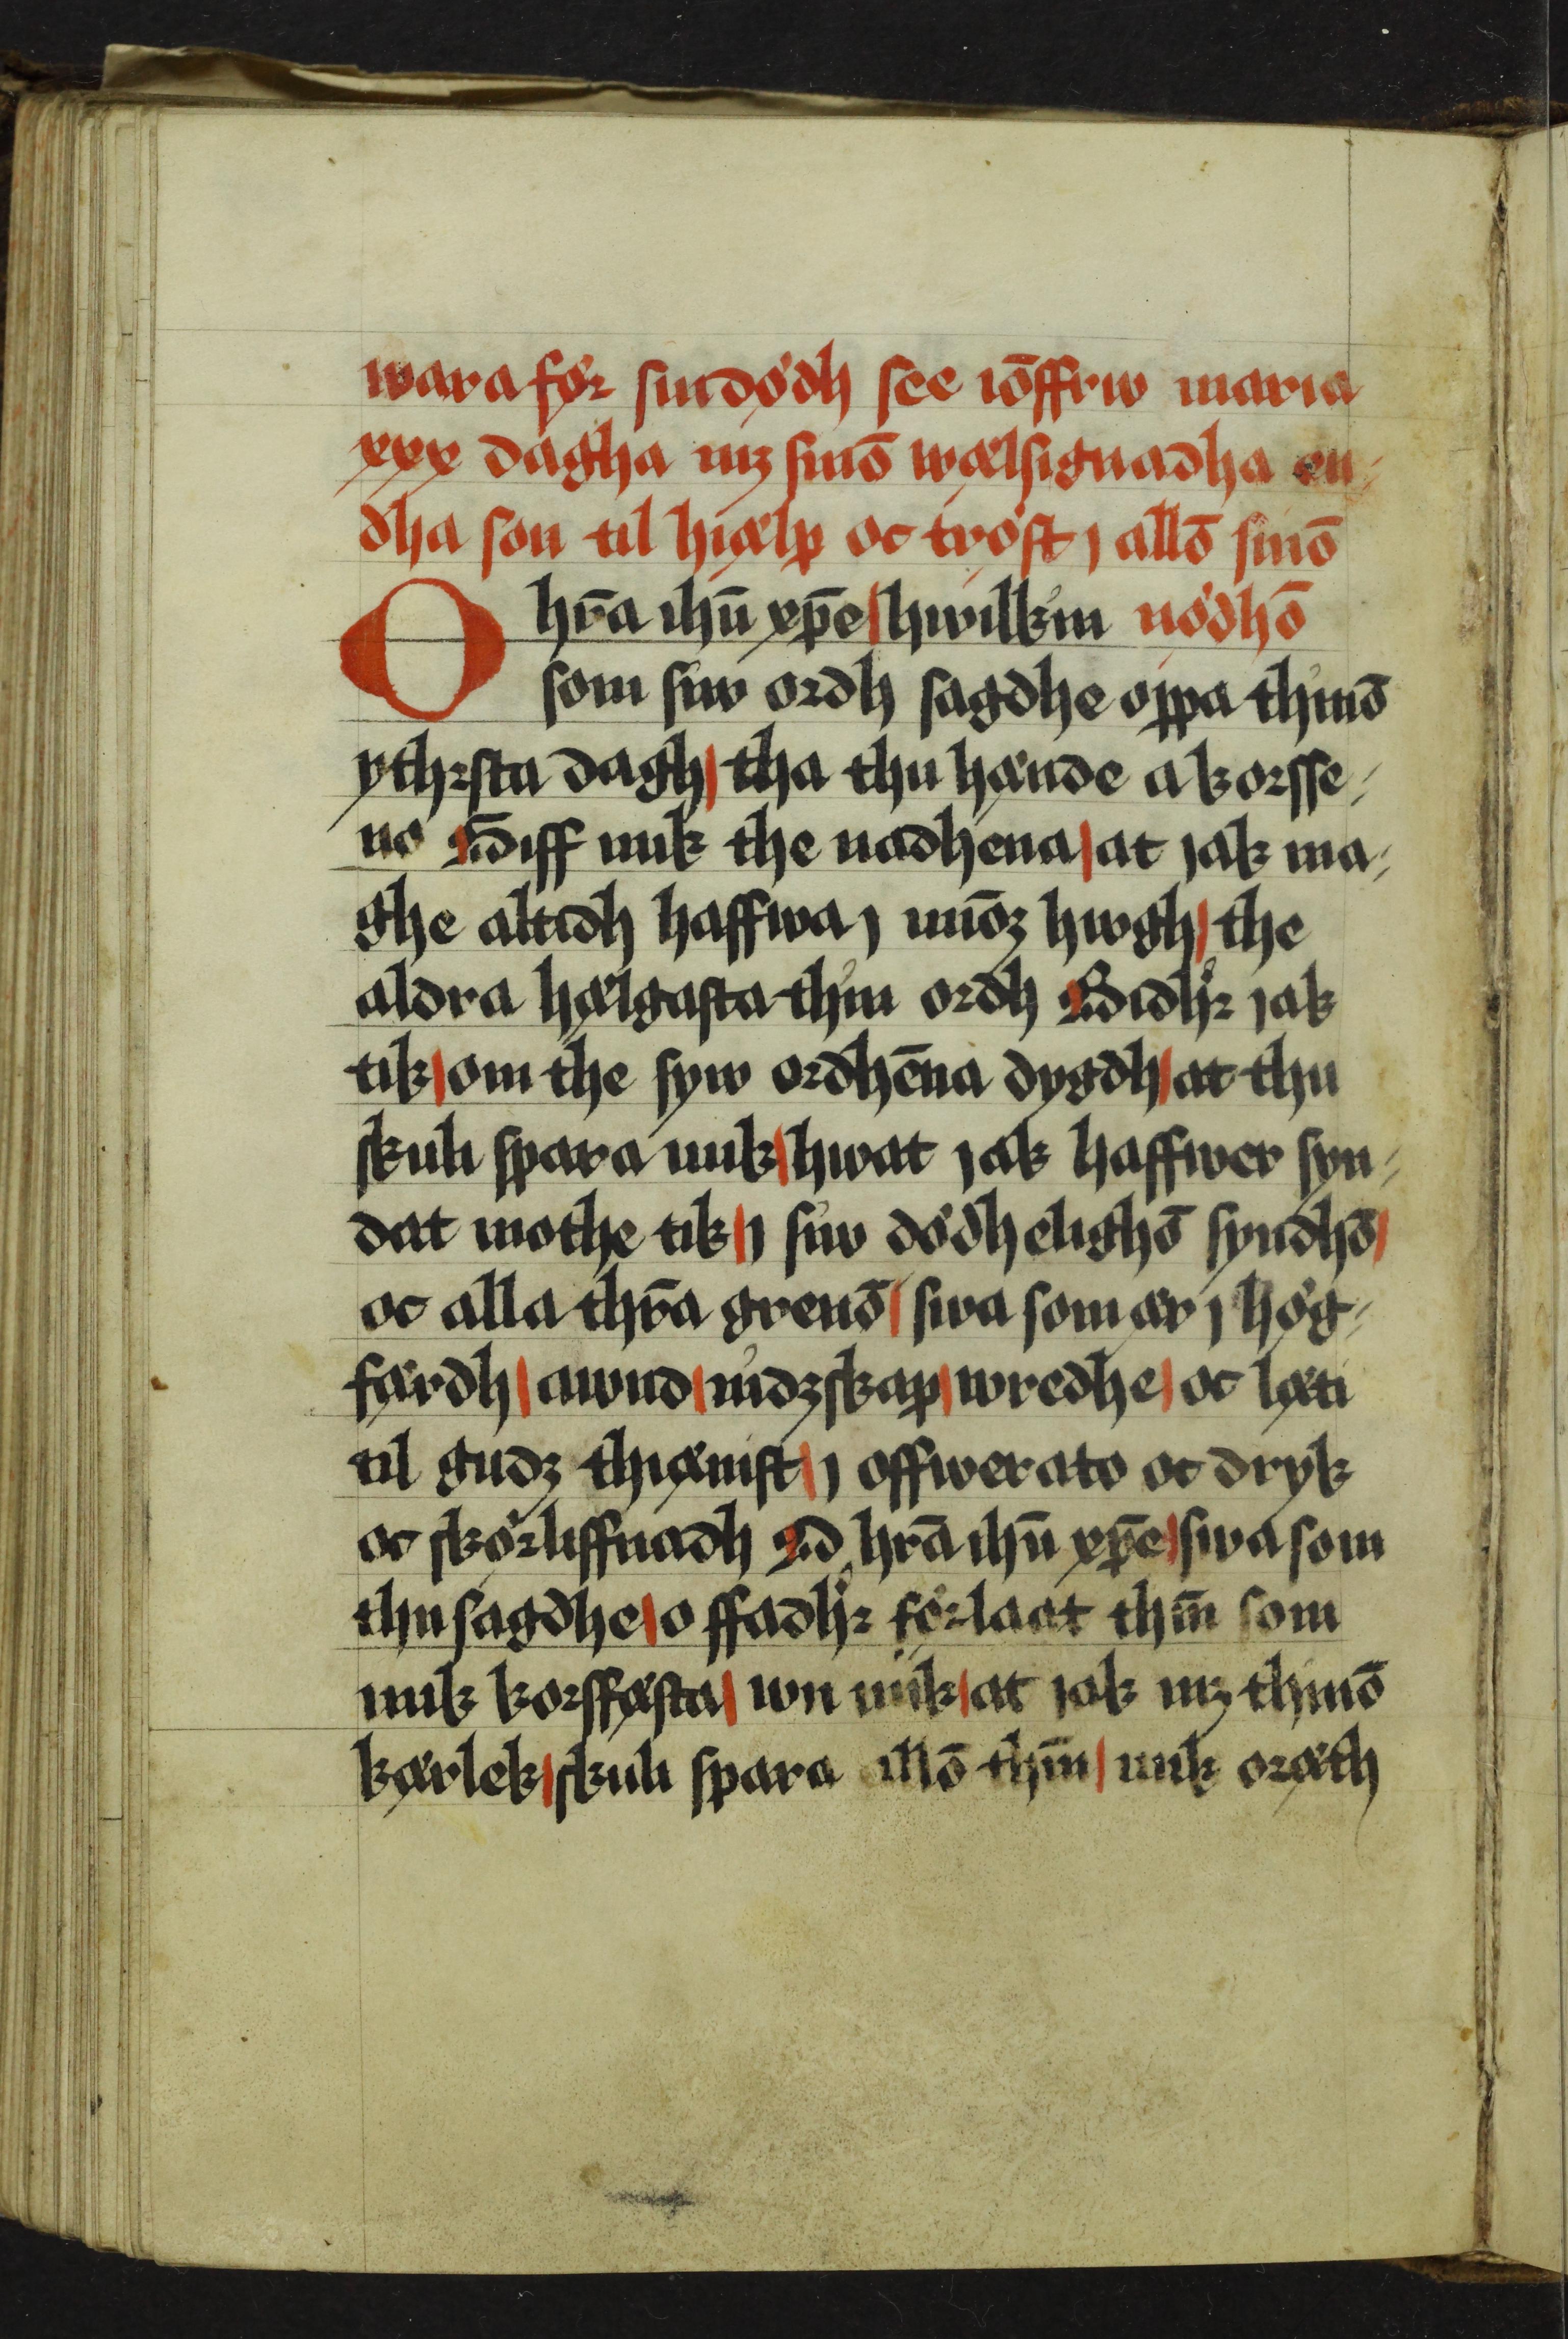 wara før sin dødh see iōffrw maria
xxx dagha mz sinō wælsignadha en-
dha son til hiælp oc trøst j allō sinō
O hr̄a ihū xp̄e hwilkin nødhō
som siw ordh sagdhe oppa thinō
ythrsta dagh tha thu hænde a korsse-
no Giff mik the nadhena at jak ma-
ghe altidh haffwa j minōz hwgh the
aldra hælgasta thin ordh Bidhr jak
tik om the syw ordhēna dygdh at thu
skuli spara mik hwat jak haffwer syn-
dat mothe tik j siw dødhelighō syndhō
oc alla thr̄a grenō swa som ær j høg-
færdh awnd nidzskap wredhe oc læti
til gudz thiænist j offwerato oc dryk
oc skørliffnadh O hr̄a ihū xp̄e swa som
thu sagdhe o ffadhr førlaat thm̄ som
mik korsfæsta wn mik at jak mz thinō
kærlek skuli spara illō thm̄ mik oræth